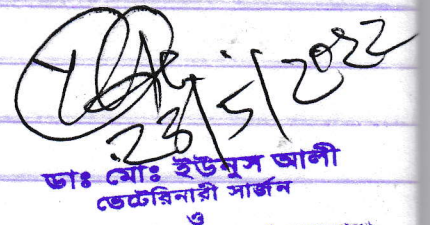 23/5/2022
ডাঃ মোঃ ইউনুস আলী
ভেটেরিনারী সার্জন
ও